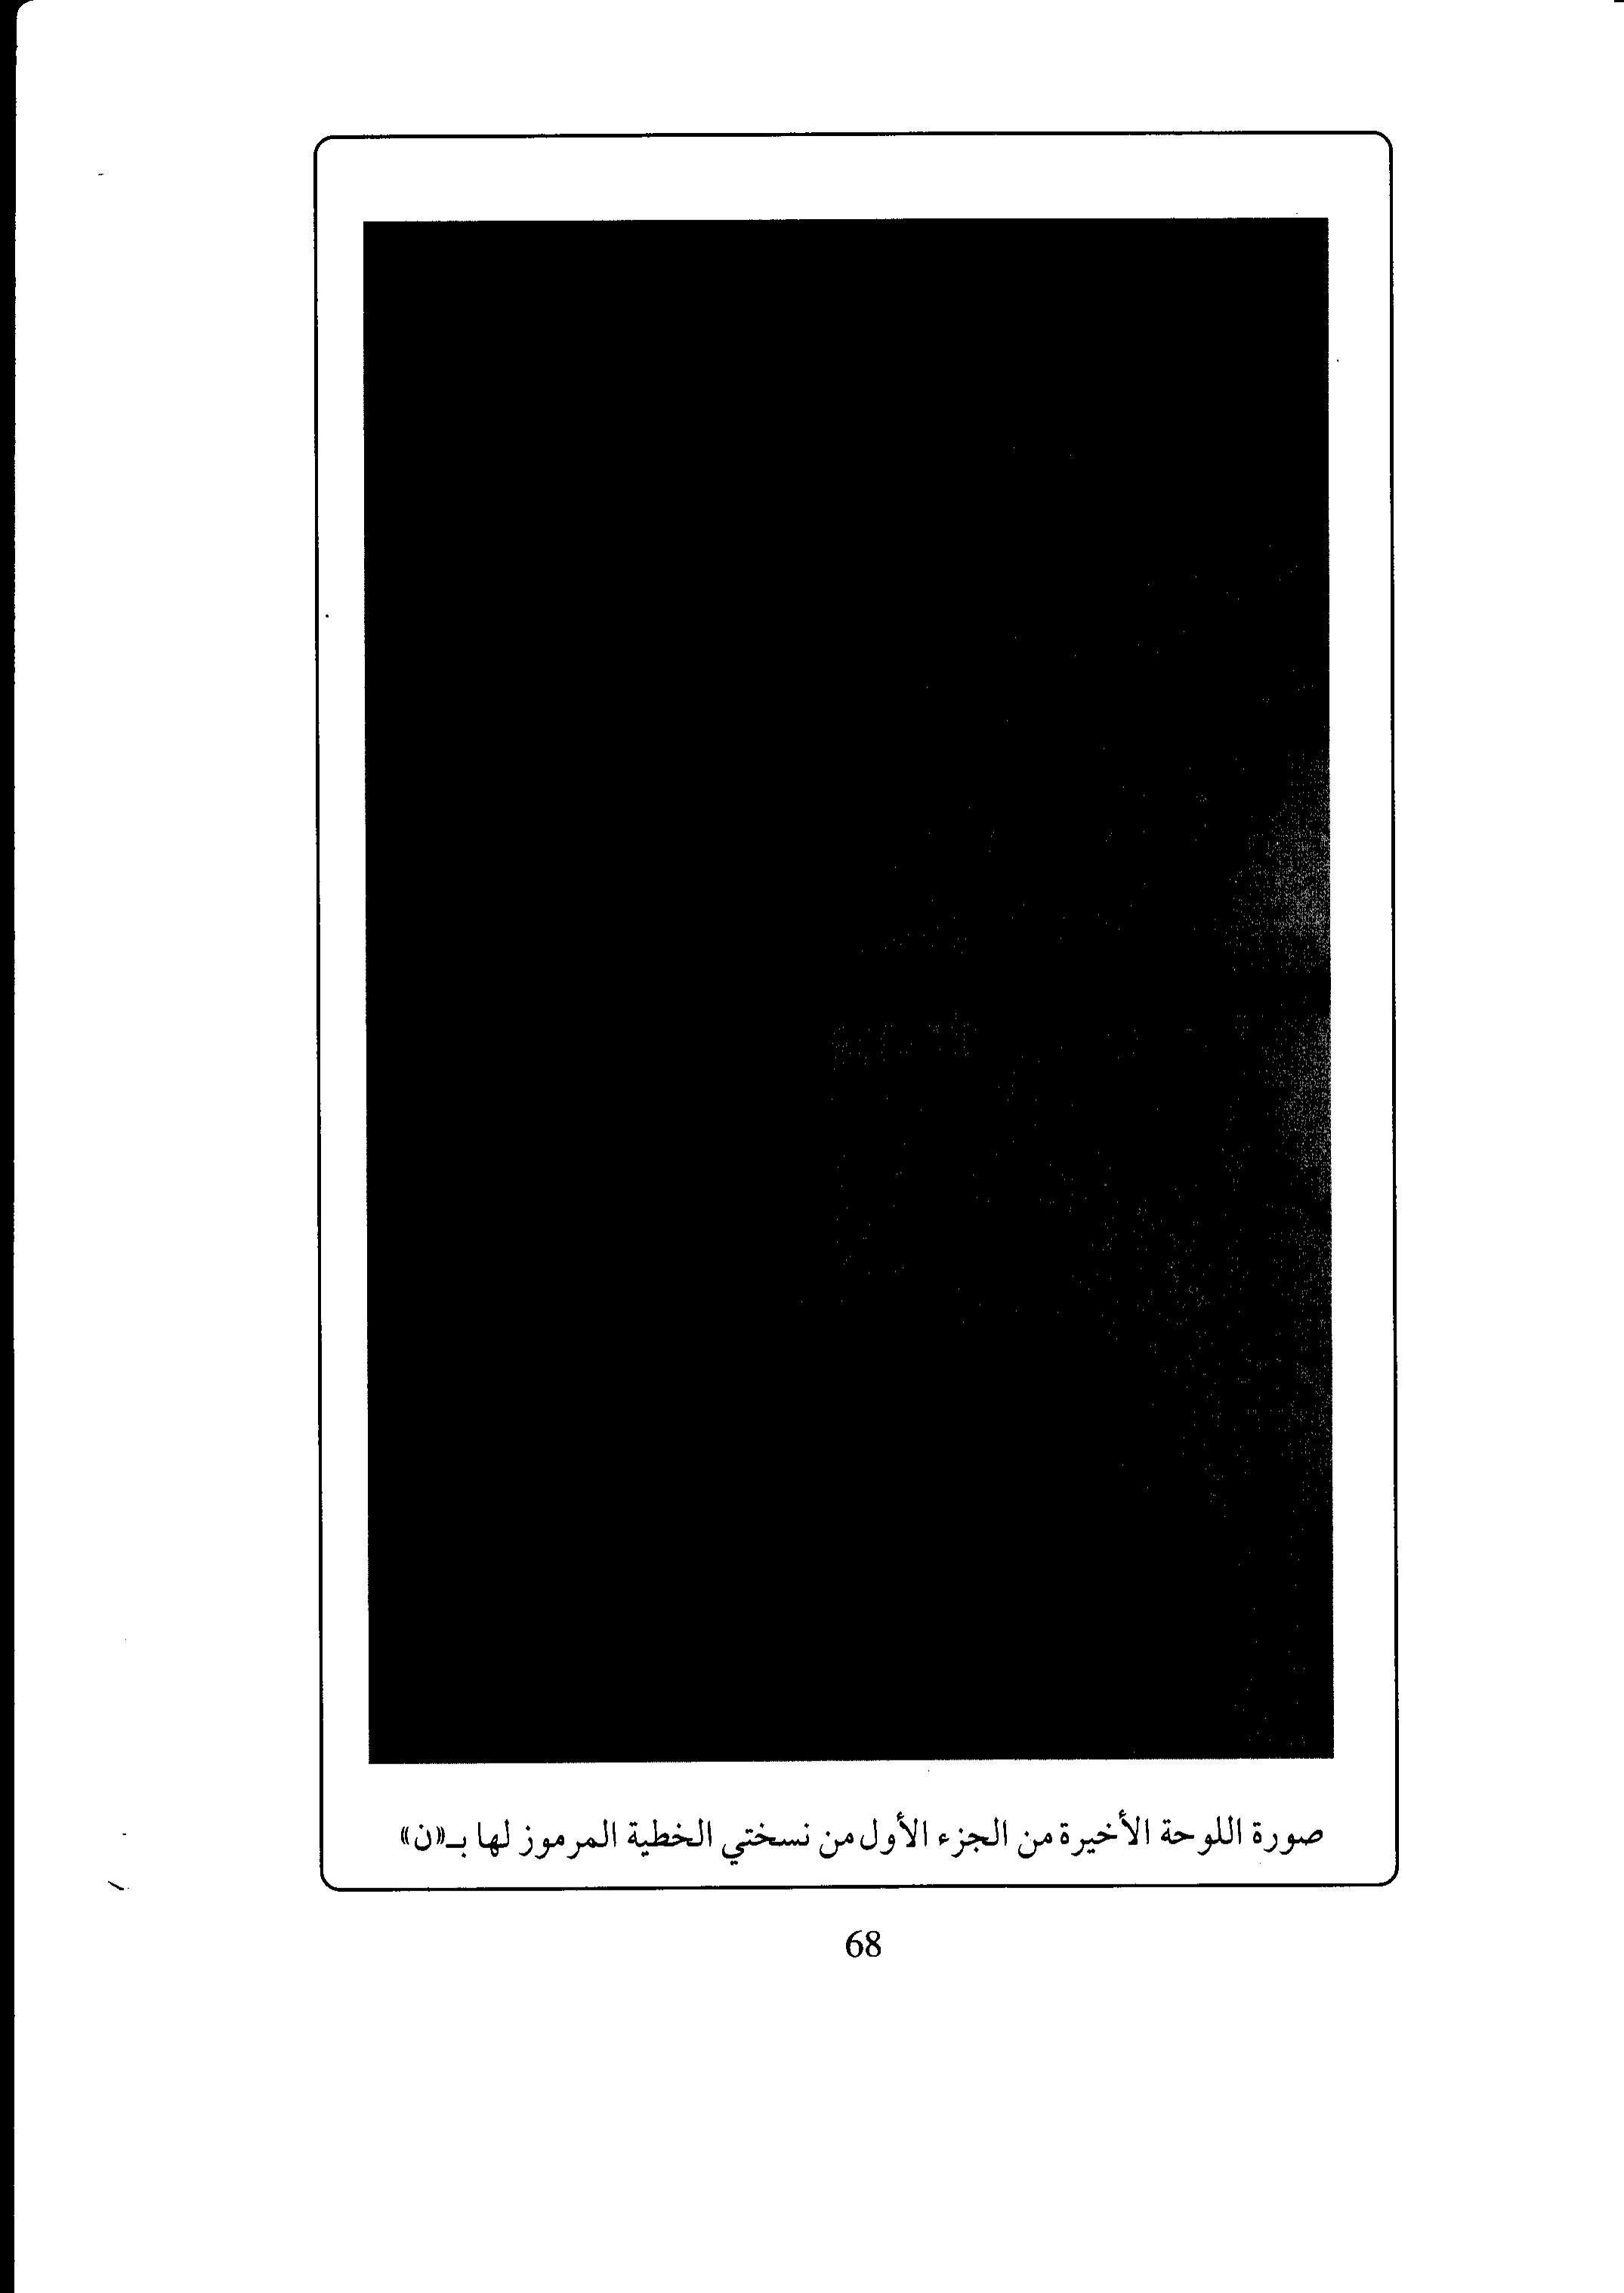 صورة اللوحة الأخيرة من الجزء الأول من نسختي الخطية المرموز لها بـ«ن»
68